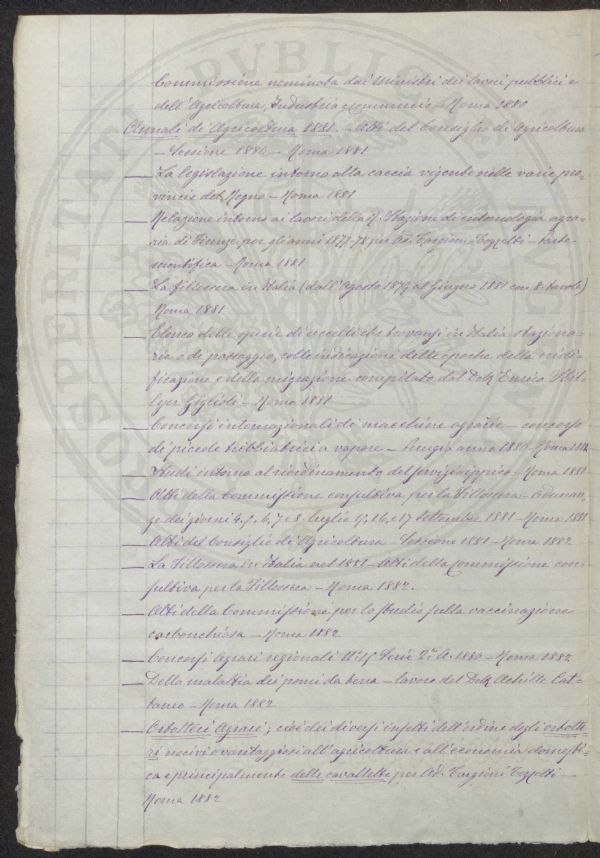 Commissione nominata dai Ministri dei lavori pubblici e
dell'Agricoltura, Industria e commercio - Roma 1880
Annali di Agricoltura 1881. - Atti del Consiglio di Agricoltura
- Sessione 1880 - Roma 1881
— La legislazione intorno alla caccia vigente nelle varie pro-
vincie del Regno - Roma 1881
— Relazione intorno ai lavori della R. Stazione di entomologia agra-
ria di Firenze per gli anni 1877-78 per Ad. Targioni Tozzetti - Parte
scientifica - Roma 1881
— La fillossera in Italia (dall'Agosto 1879 al Giugno 1881 con 8 tavole)
Roma 1881
— Elenco delle specie di uccelli che trovansi in Italia staziona-
rie o di passaggio, colle indicazione delle epoche della nidi-
ficazione e della migrazione compilato dal Dott. Enrico Hil-
lyer Giglioli - Roma 1881
— Concorsi internazionali di macchine agrarie - concorso
di piccole trebbiatrici a vapore - Perugia anno 1880 - Roma
— Studi intorno al riordinamento del servizio ippico - Roma 1881
— Atti della Commissione consultiva per la Fillossera - adunan-
ze dei giorni 4, 5, 6, 7 e 8 luglio 15, 16, e 17 settembre 1881 - Roma 1881
— Atti del Consiglio di Agricoltura - Sessione 1881 - Roma 1882
— La Fillossera in Italia nel 1881 - Atti della Commissione con-
sultiva per la Fillossera - Roma 1882.
— Atti della Commissione per lo studio sulla vaccinazione
carbonchiosa - Roma 1882
— Concorsi Agrari regionali Serie 2ª A. 1880 - Roma 1882
— Della malattia dei pomi da terra - lavoro del Dott. Achille Cat-
taneo - Roma 1882
— Ortotteri Agrari; cioè dei diversi insetti dell'ordine degli ortotte-
ri nocivi o vantaggiosi all'agricoltura e all'economia domesti-
ca e principalmente delle cavallette per Ad. Targioni Tozzetti -
Roma 1882
PROSPERITATI PVBLICAE AVG